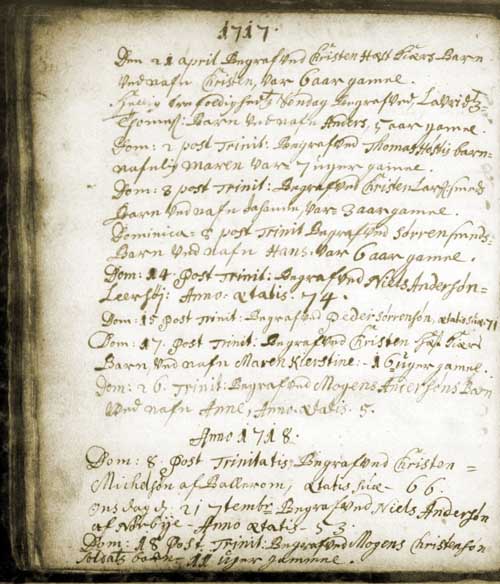 1717.
Den 21 april Begrafved Christen Hæst Kiærs Barn
Ved nafn Christen, var 6 aar gamel.
Hellig trefoldigheds Søndag Begrafved, Laurids
Barn ved nafn Anders, 5 aar gamel.
Dom: 2 post Trinit: Begrafved Thomas barn
nafnlig Maren var 7 uger gamel.
Dom: 3 post Trinit: Begrafved Christen
Barn ved nafn var 3 aar gamel.
Dominica 8 post Trinit Begrafved Sørren Smeds
Barn ved nafn Hans, var 6 aar gamel.
Dom: 14 Post Trinit: Begrafved Niels Andersøn
Leerhøj: Anno ætatis. 74.
Dom: 15 Post Trinit: Begrafved Peder Sørrensøn, ætatis suæ 71
Dom: 17. Post Trinit: Begrafved Christen Kiærs
Barn, ved nafn Maren Kierstine - 16 uger gamel.
Dom: 26. Trinit: Begrafved Mogens Andersøns Barn
Ved nafn Anne, Anno ætatis. 5.
Anno 1718.
Dom: 8. Post Trinitatis Begrafved Christen
Michelsøn af Ballerom, ætatis suæ - 66
Onsdag d. 21 7tembr Begrafved Niels Andersøn
af Nørbye - Anno ætatis - 53.
Dom: 18 Post Trinit: Begrafved Mogens Christensøn
Soldats barn - 11 uger gammel.